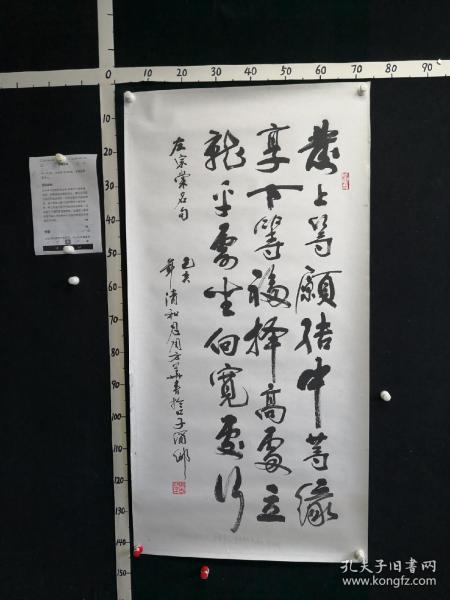 10 0 10 20 30 40 50 60 70 80 90
10
20
30
40
50
60
70
80
90
100
110
120
130
140
150
發上等願結中等緣
享下等福择高處立
就平處坐向寬處行
左宗棠名句
己亥
年清和月周方書於口子酒鄉
孔夫子旧书网
www.kongfz.com